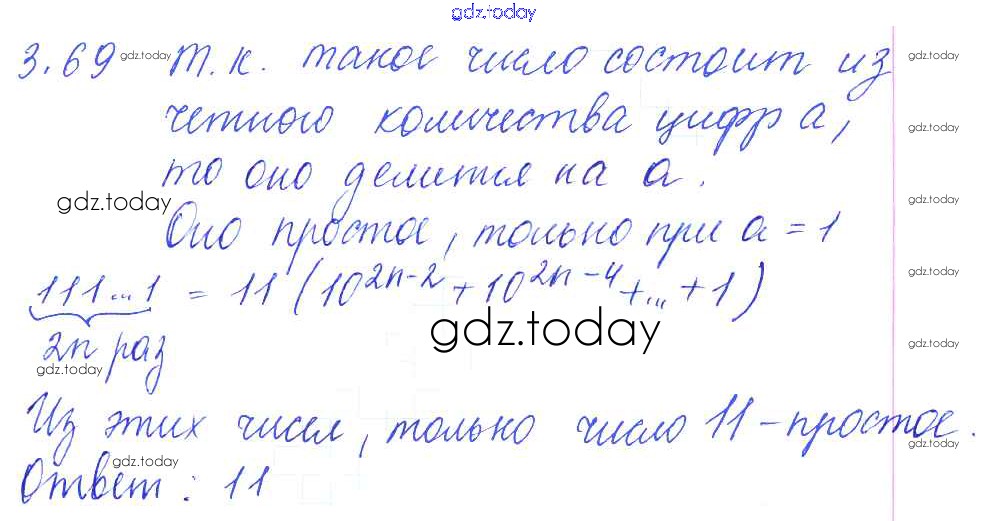 gdz.today
3.69 gdz.today Т.к. такое число состоит из gdz.today
четного количества цифр a, gdz.today
то оно делится на a. gdz.today
gdz.today gdz.today
Оно простое, только при a = 1 gdz.today
111...1 = 11 (10^{2n-2} + 10^{2n-4} + ... + 1) gdz.today
gdz.today
2n раз gdz.today
gdz.today
Из этих чисел, только число 11 - простое. gdz.today
gdz.today
Ответ: 11 gdz.today